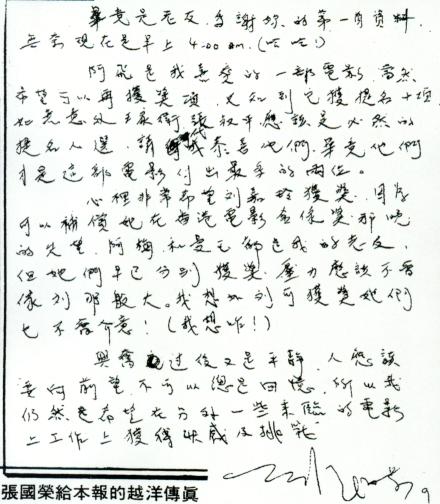 畢竟是老友，多謝妳的第一內資料，
無奈現在是早上 4:00 am.(哈哈!)
阿飛是我喜愛的一部電影，當然
希望可以再獲獎項，又知到它獲提名十項
如無意外張衛張叔平應該是必然的
提名人選，請代我恭喜他們，畢竟他們
是這部電影付出最多的兩位。
心裡非常希望劉嘉玲獲獎，因為
可以補償她在香港電影金像獎那晚
的失望，阿梅和曼玉都是我的老友，
但她們早已分別獲獎，壓力應該不會
像列那般大。我想如列可獲獎她們
也不會介意！(我想咋！)
興奮過後又是平靜，人應該
要向前望，不可以總是回憶，所以我
仍然是希望在另外一些未臨的電影
上工作上獲得快感及挑戰
張國榮給本報的越洋傳眞